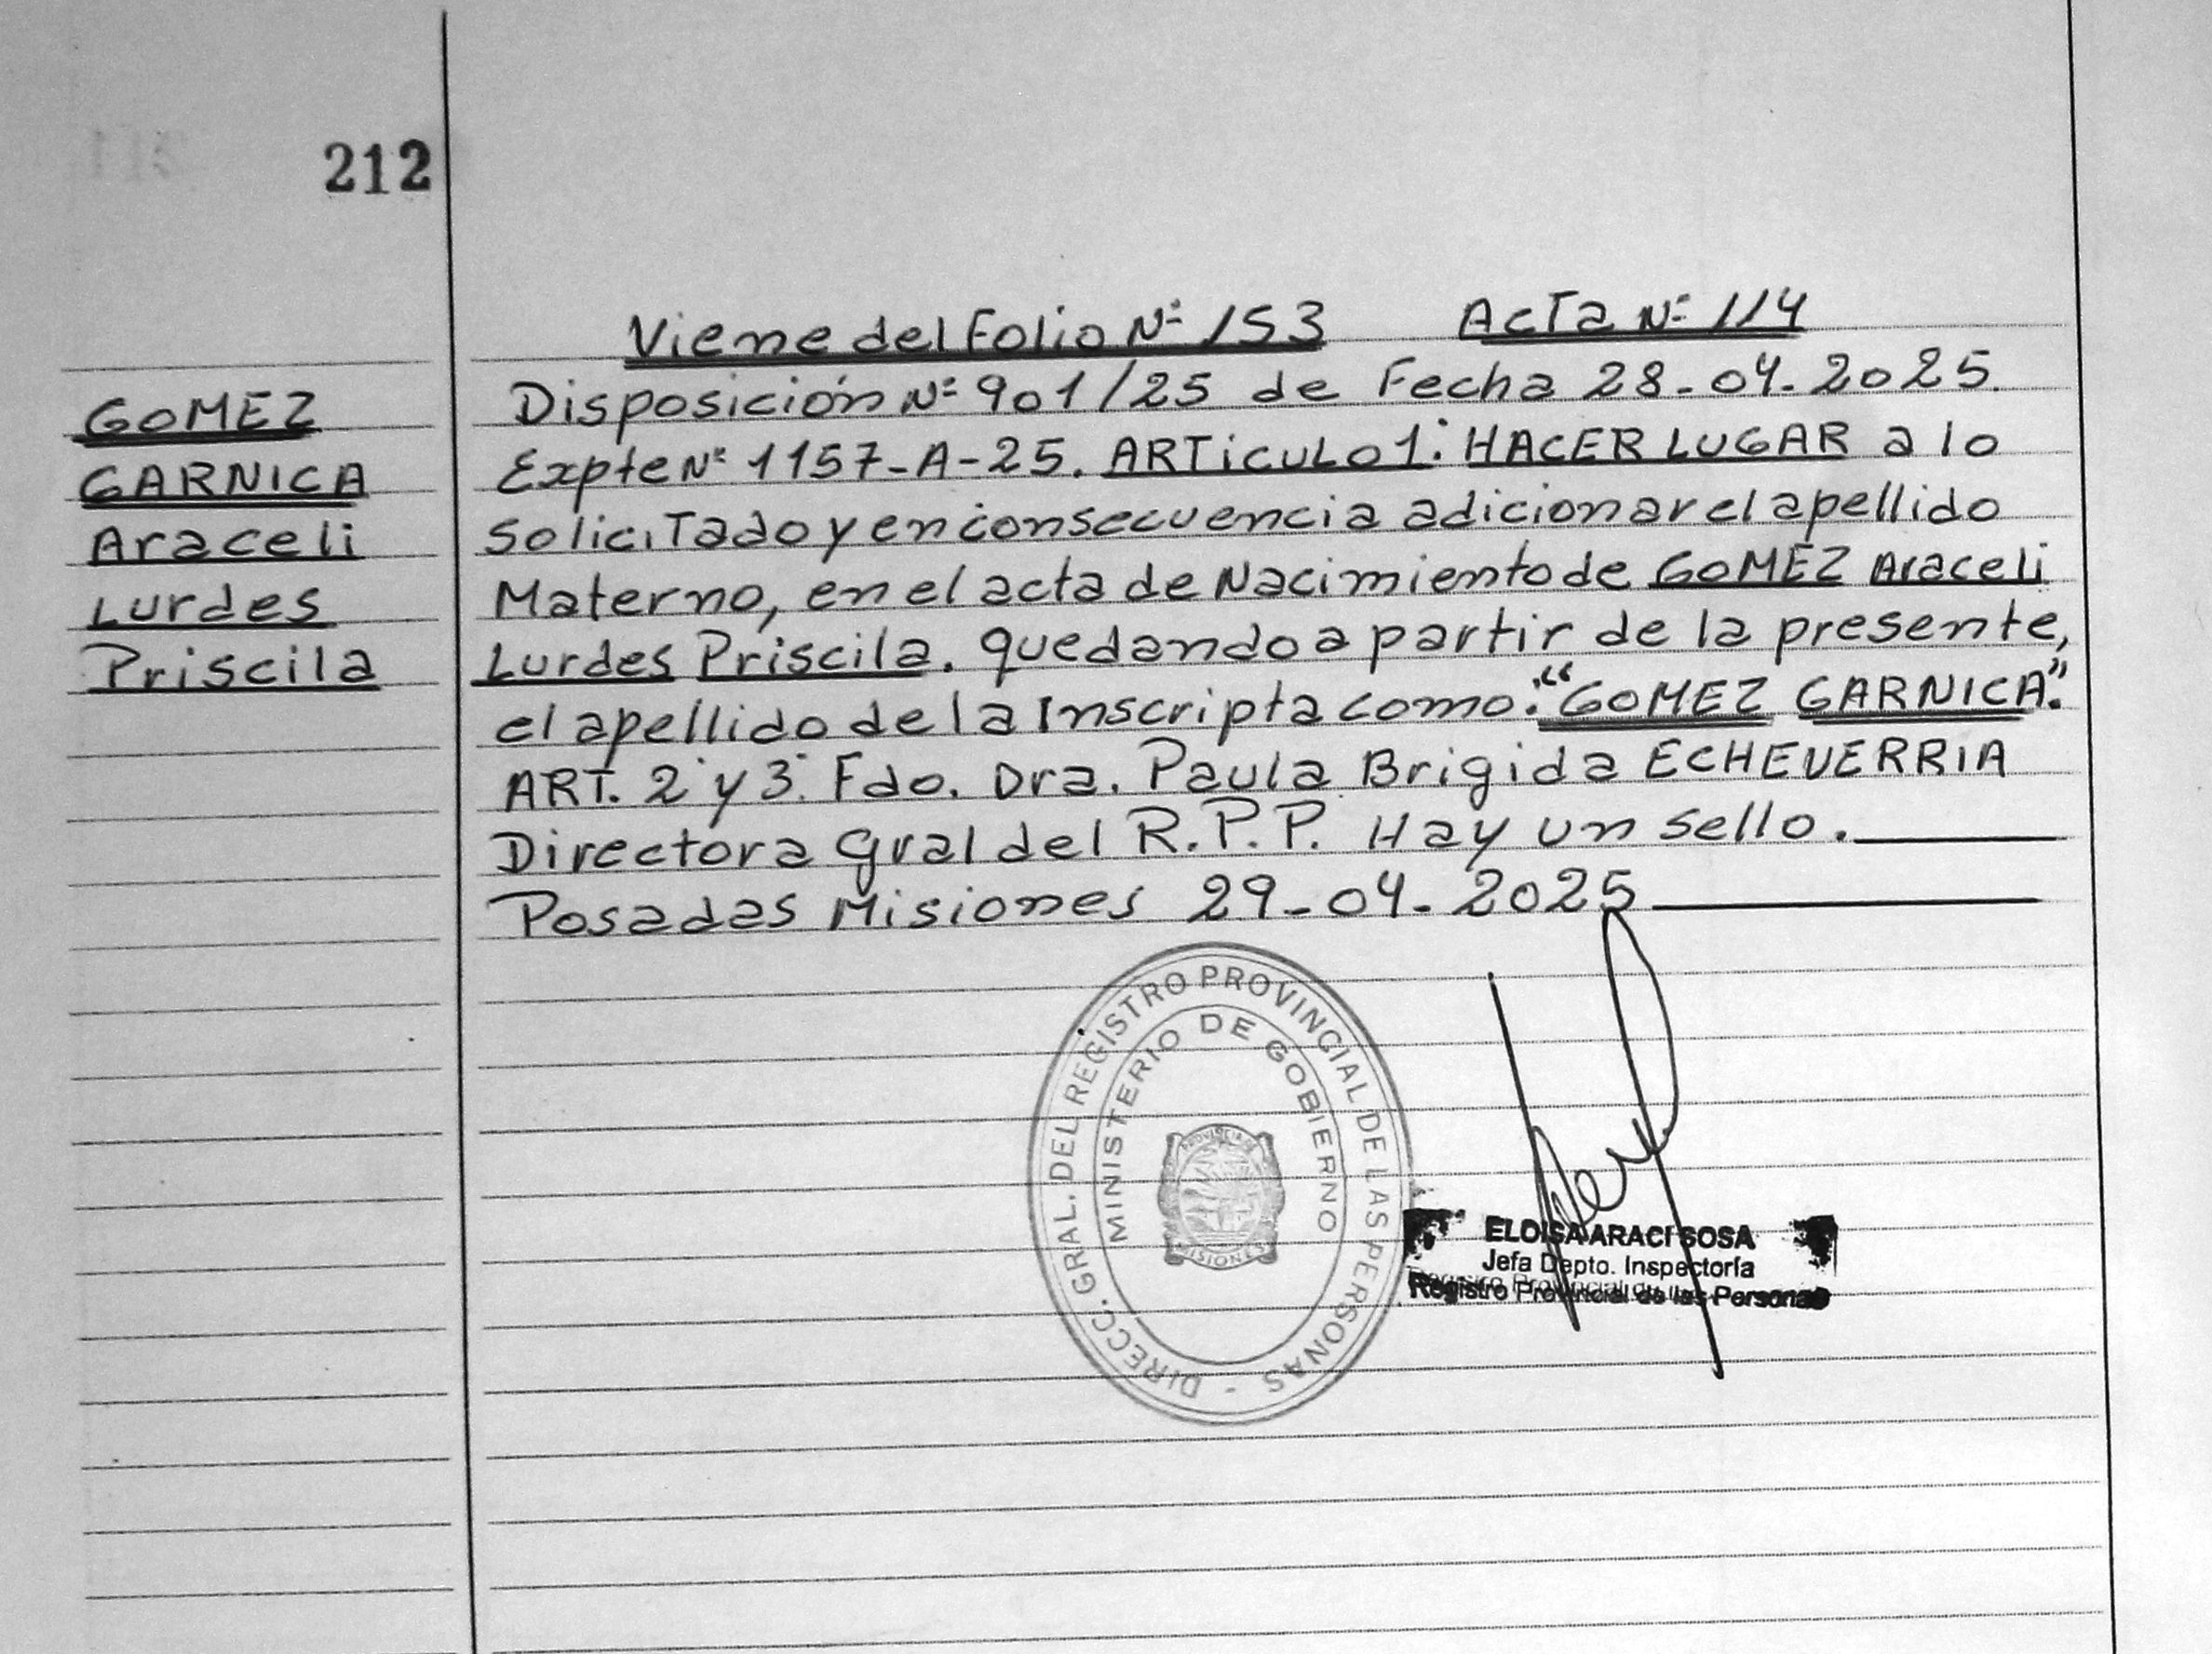 212
Viene del Folio Nº 153 Acta Nº 114
GOMEZ
GARNICA
Araceli
Lurdes
Priscila
Disposición Nº 901/25 de Fecha 28-04-2025.
Expte Nº 1157-A-25. ARTICULO 1: HACER LUGAR a lo
solicitado y en consecuencia adicionar el apellido
Materno, en el acta de Nacimiento de GOMEZ Araceli
Lurdes Priscila. quedando a partir de la presente,
el apellido de la Inscripta como: "GOMEZ GARNICA".
ART. 2º y 3º Fdo. Dra. Paula Brigida ECHEVERRIA
Directora Gral del R.P.P. Hay un sello.
Posadas Misiones 29-04-2025
DIRECC. GRAL. DEL REGISTRO PROVINCIAL DE LAS PERSONAS -
MINISTERIO DE GOBIERNO
PROVINCIA DE
MISIONES
ELOISA ARACI SOSA
Jefa Depto. Inspectoría
Registro Provincial de las Personas